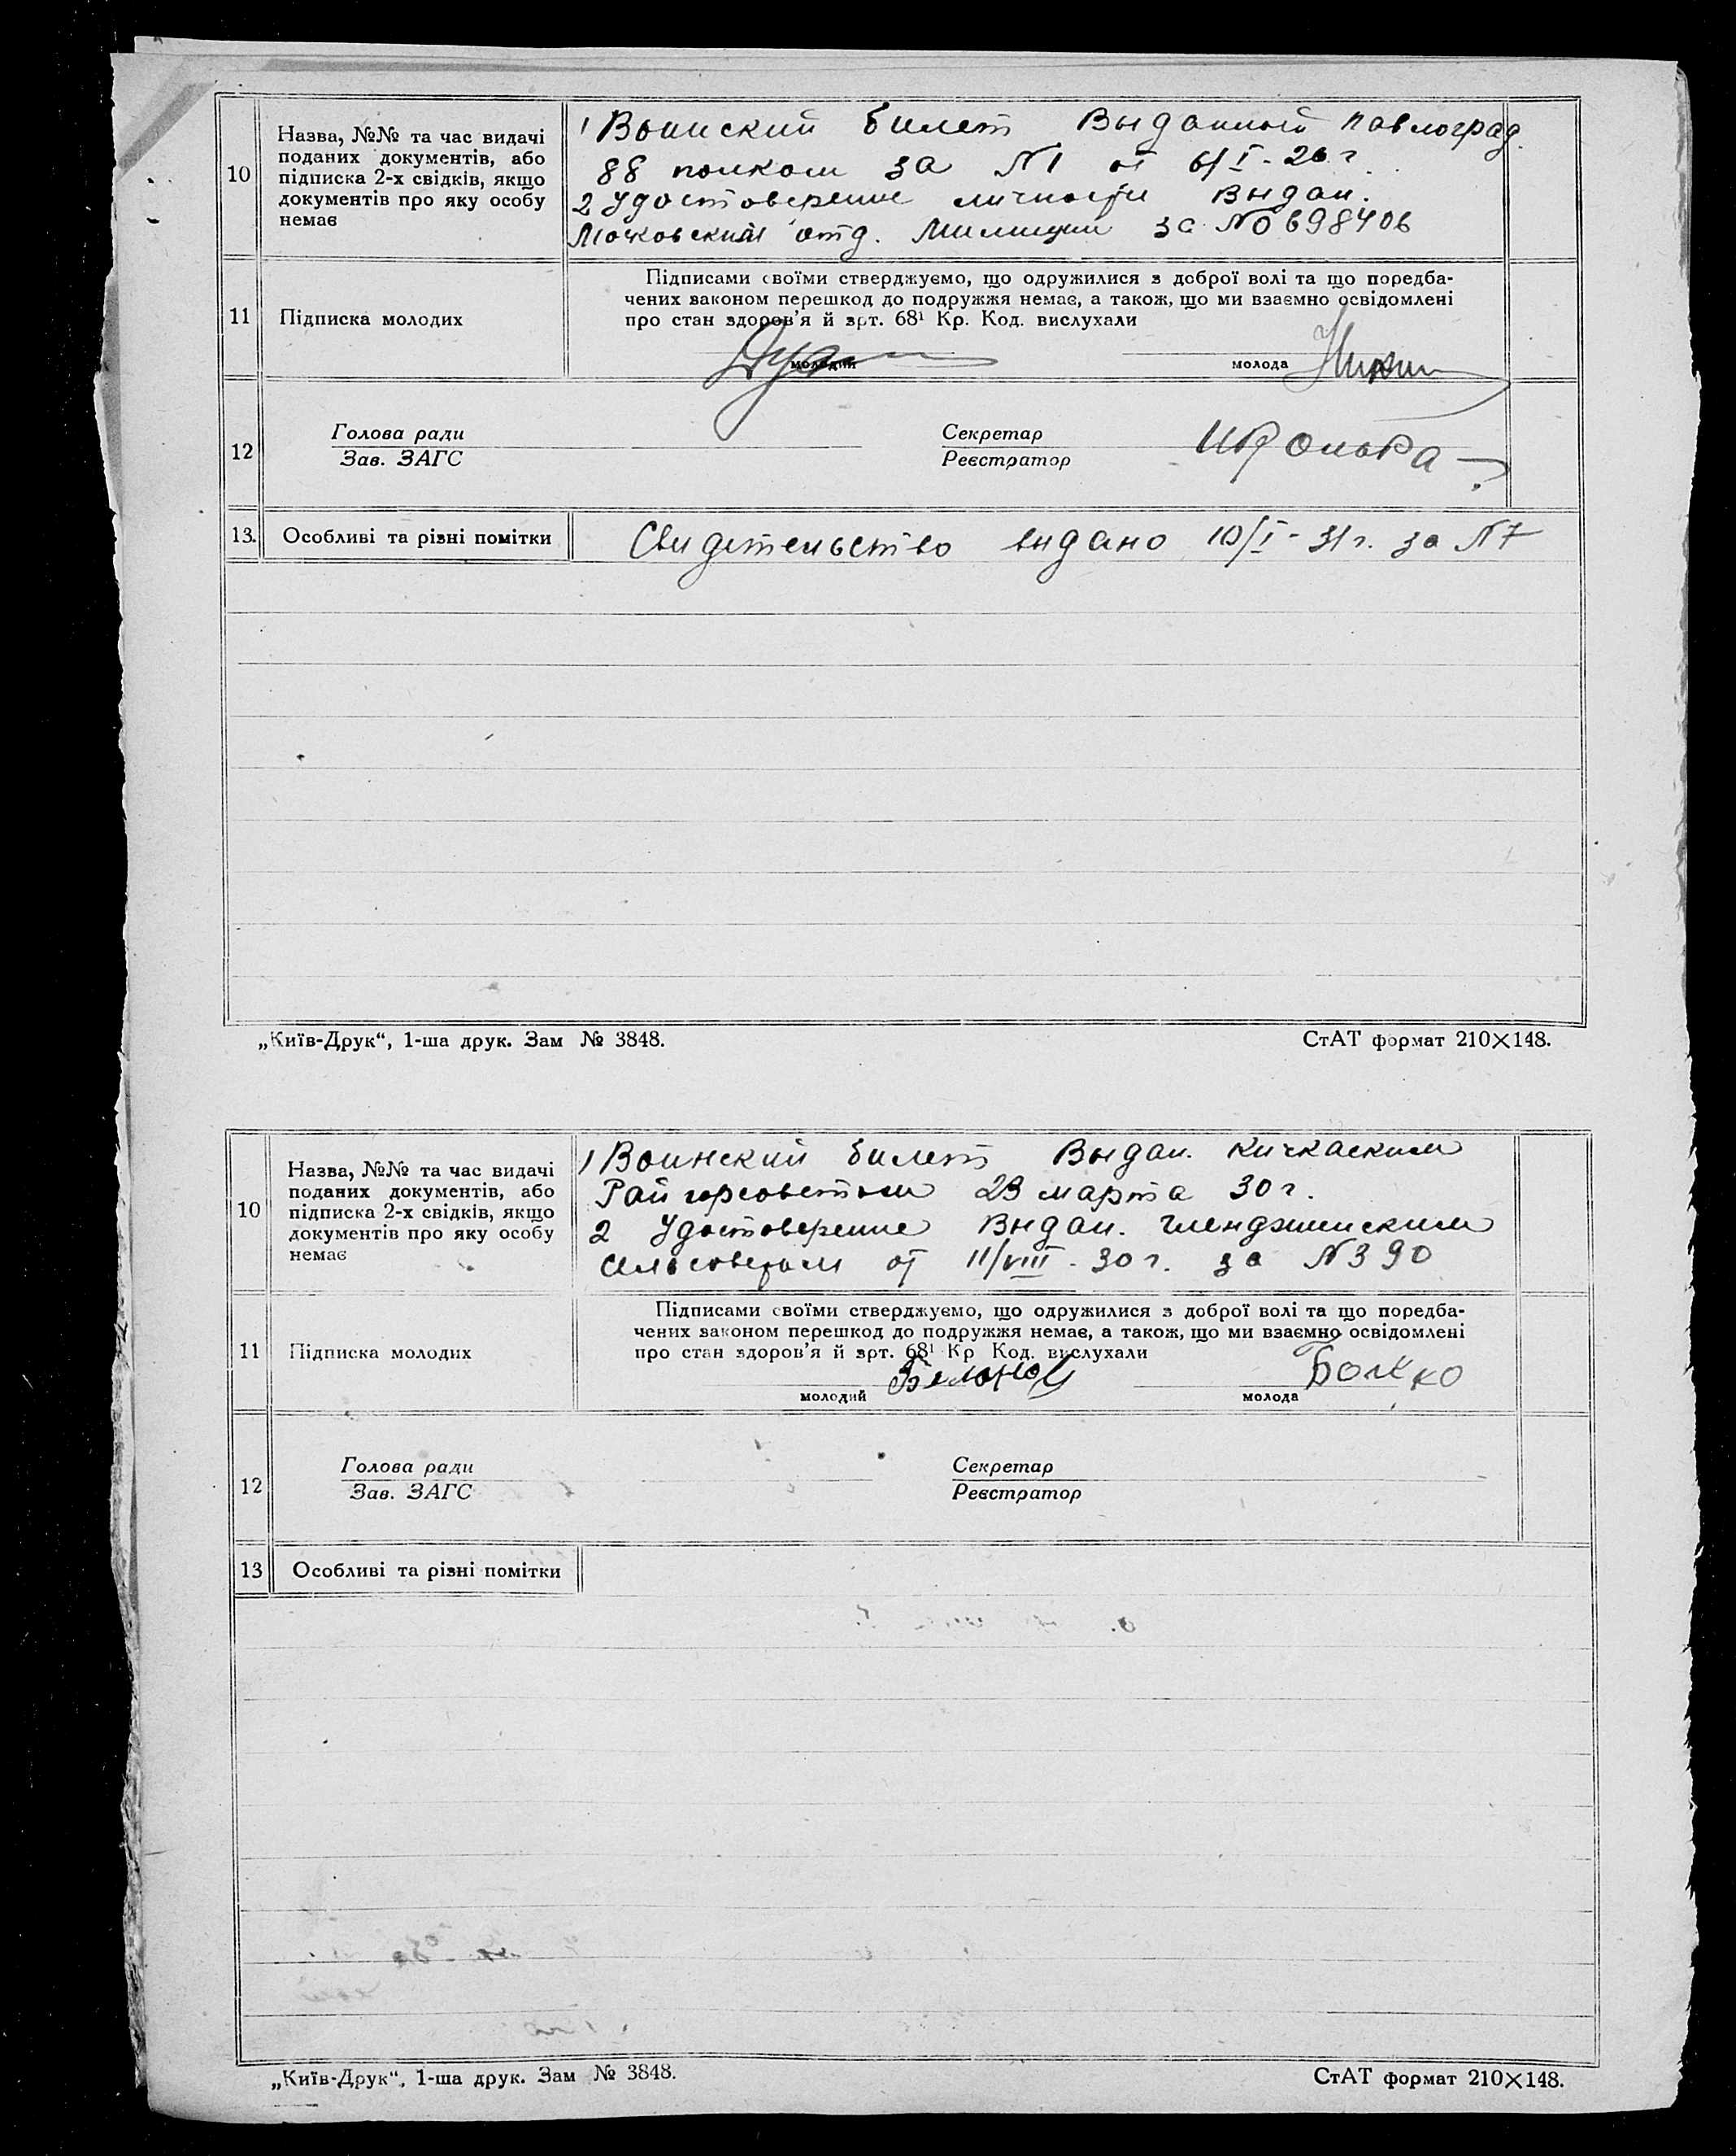 10
Назва, №№ та час видачі
поданих документів, або
підписка 2-х свідків, якщо
документів про яку особу
немає
1 Воинский билет Выданный Павлоград.
88 полком за N1 от 6/I-26 г.
2 Удостоверение личности Выдан.
отд. Милиции за No 698406
11
Підписка молодих
Підписами своїми стверджуємо, що одружилися з доброї волі та що поредба-
чених законом перешкод до подружжя немає, а також, що ми взаємно освідомлені
про стан здоров'я й зрт. 68¹ Кр. Код. вислухали
молодий
молода
12
Голова ради
Зав. ЗАГС
Секретар
Реєстратор
13.
Особливі та різні помітки
Свидетельство выдано 10/I-31 г. за N7
„Київ-Друк“, 1-ша друк. Зам № 3848.
СтАТ формат 210×148.
10
Назва, №№ та час видачі
поданих документів, або
підписка 2-х свідків, якщо
документів про яку особу
немає
1 Воинский билет Выдан. Кичкаским
Райгорсоветом 23 марта 30 г.
2 Удостоверение Выдан.
сельсоветом от 11/VIII-30 г. за N390
11
Підписка молодих
Підписами своїми стверджуємо, що одружилися з доброї волі та що поредба-
чених законом перешкод до подружжя немає, а також, що ми взаємно освідомлені
про стан здоров'я й зрт. 68¹ Кр Код. вислухали
молодий
молода Божко
12
Голова ради
Зав. ЗАГС
Секретар
Реєстратор
13
Особливі та різні помітки
„Київ-Друк“, 1-ша друк. Зам № 3848.
СтАТ формат 210×148.